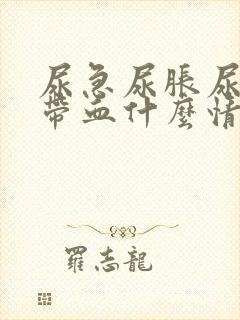 尿急尿脹尿
帶血什麼情
羅志龍